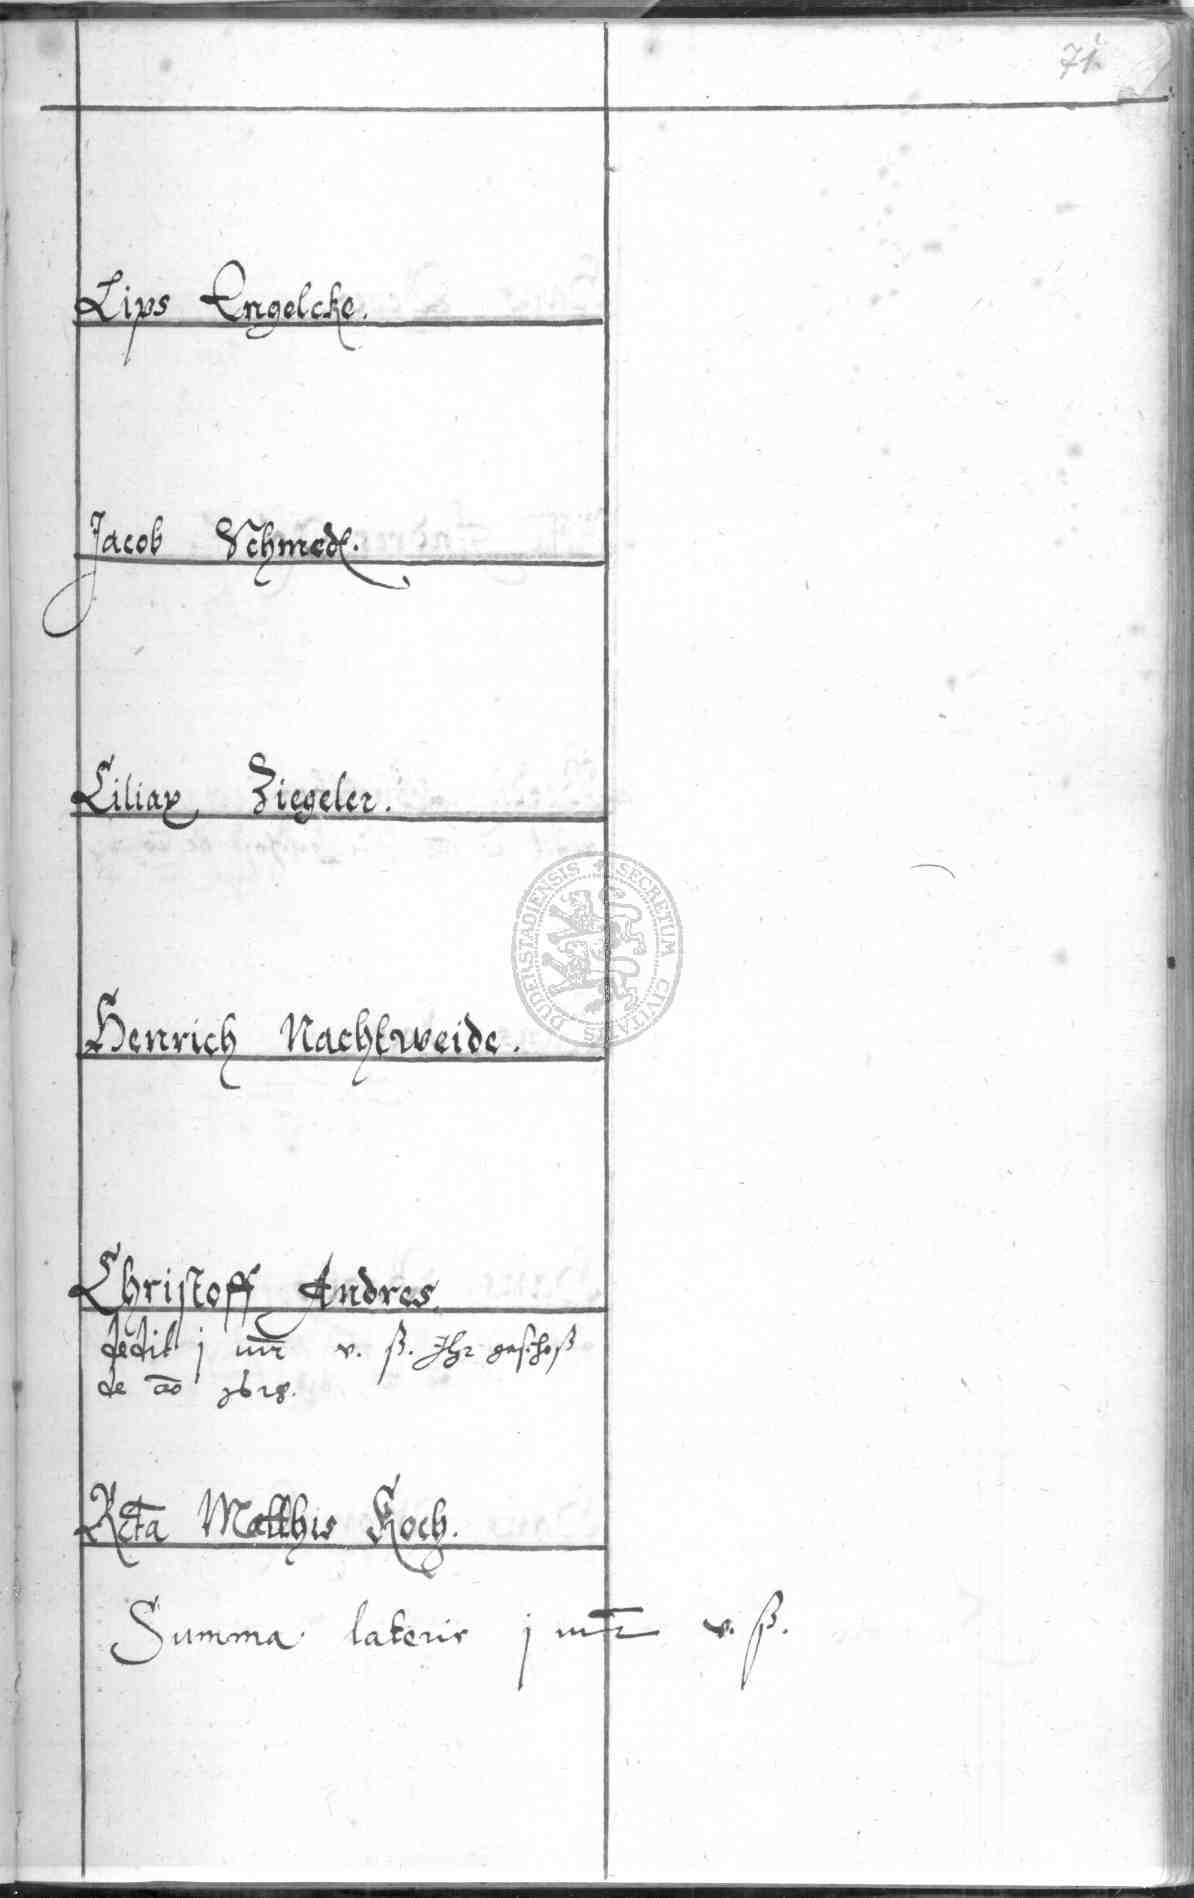 71
Lips Engelcke.
Jacob Schmedt.
Ciliax Ziegeler.
DUDERSTADIENSIS SECRETUM CIVITATIS
Henrich Nachtweide.
Christoff Andres.
dedit j mr v. ß. Ihr geschoß
de ao 1618.
Matthis Koch.
Summa lateris j mr v. ß.